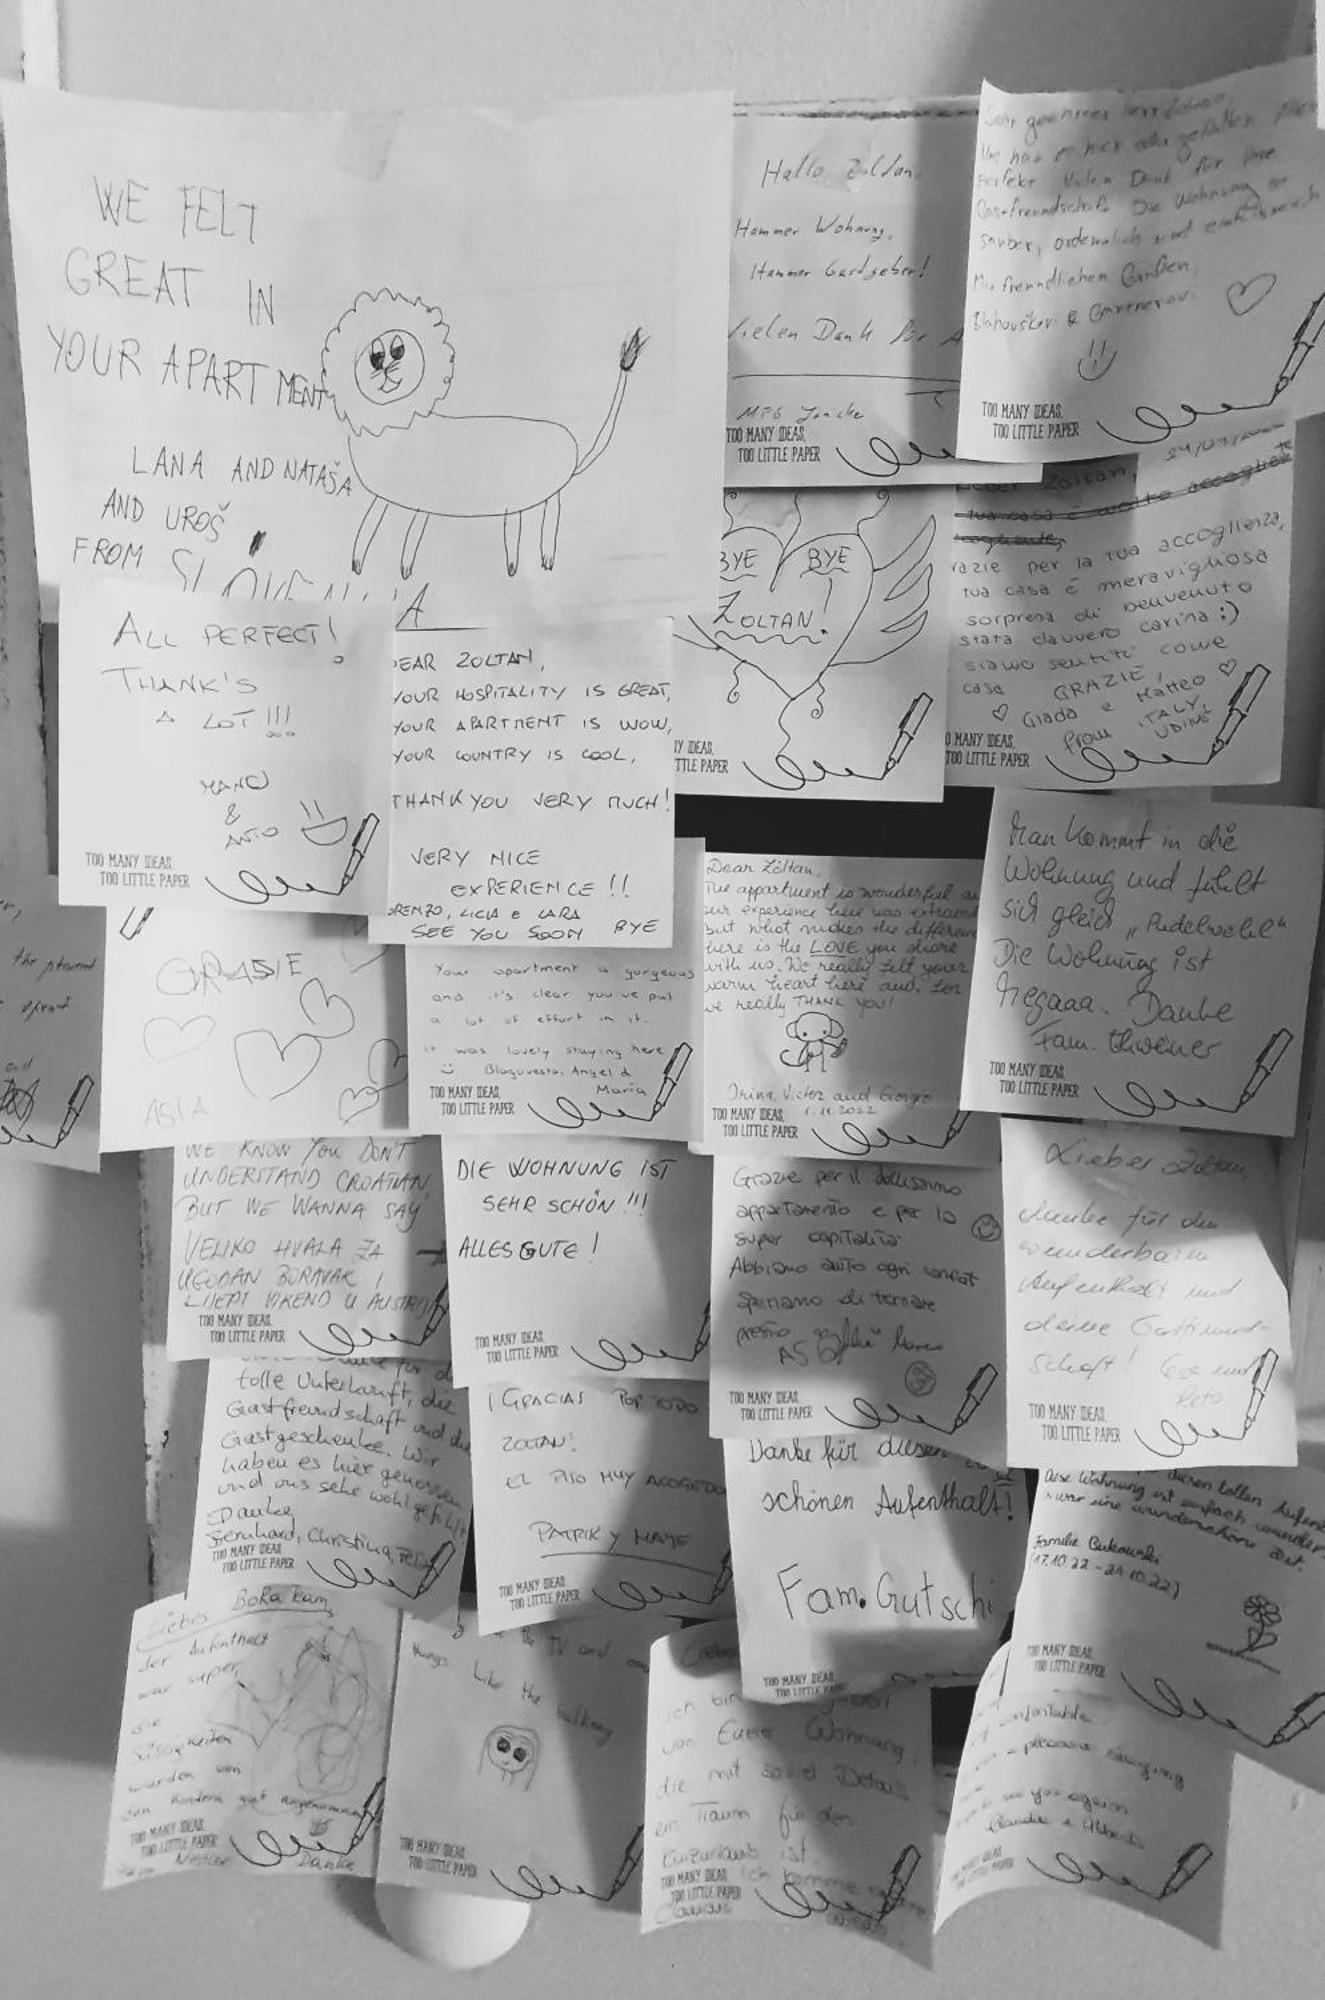 WE FELT
GREAT IN
YOUR APARTMENT
LANA AND NATAŠA
AND UROŠ
FROM SLOVENIJA
Hallo Zoltan
Hammer Wohnung,
Hammer Gastgeber!
Vielen Dank für
TOO MANY IDEAS,
TOO LITTLE PAPER
Sehr geehrter Herr
Uns hat es hier sehr gefallen
perfekt Vielen Dank für Ihre
Gastfreundschaft. Die Wohnung
sauber, ordentlich und
Mit freundlichen Grüßen,
TOO MANY IDEAS,
TOO LITTLE PAPER
BYE BYE
ZOLTAN!
NY IDEAS,
TTLE PAPER
Zoltan,
tua casa è molto accogliente
razie per la tua accoglienza,
tua casa è meravigliosa
sorpresa di benvenuto
stata davvero carina :)
siamo sentiti come
casa GRAZIE!
Giada e Matteo
from ITALY,
UDINE
O MANY IDEAS,
TOO LITTLE PAPER
ALL PERFECT!
THANK'S
A LOT!!!
&
TOO MANY IDEAS,
TOO LITTLE PAPER
EAR ZOLTAN,
YOUR HOSPITALITY IS GREAT,
YOUR APARTMENT IS WOW,
YOUR COUNTRY IS COOL,
THANK YOU VERY MUCH!
VERY NICE
EXPERIENCE!!
ORENZO, LICIA e LARA
SEE YOU SOON BYE
Dear Zoltan,
The appartment is wonderful
our experience here was
but what makes the difference
here is the LOVE you share
with us. We really felt your
warm heart here and, for
we really THANK YOU!
Irina, Victor and
1.11.2022
TOO MANY IDEAS,
TOO LITTLE PAPER
Man kommt in die
Wohnung und fühlt
sich gleich „Pudelwohl“
Die Wohnung ist
Megaaa. Danke
Fam.
TOO MANY IDEAS,
TOO LITTLE PAPER
the
spent
and
GRASIE
ASIA
Your apartment is gorgeous
and it's clear you've put
a lot of effort in it.
It was lovely staying here
Blagovesta, Angel &
Maria
TOO MANY IDEAS,
TOO LITTLE PAPER
WE KNOW YOU DON'T
UNDERSTAND CROATIAN,
BUT WE WANNA SAY
VELIKO HVALA ZA
UGODAN BORAVAK!
LIJEPI VIKEND U AUSTRIJI
TOO MANY IDEAS,
TOO LITTLE PAPER
DIE WOHNUNG IST
SEHR SCHÖN!!!
ALLES GUTE!
TOO MANY IDEAS,
TOO LITTLE PAPER
Grazie per il bellissimo
appartamento e per la
super
Abbiamo
speriamo di tornare
presto
TOO MANY IDEAS,
TOO LITTLE PAPER
Lieber Zoltan,
danke für den
wunderbaren
Aufenthalt und
deine Gastfreund-
schaft! und
Reto
TOO MANY IDEAS,
TOO LITTLE PAPER
für d
tolle Unterkunft, die
Gastfreundschaft und die
Gastgeschenke. Wir
haben es hier genossen
und uns sehr wohl gefühlt
Danke
Bernhard, Christina,
TOO MANY IDEAS,
TOO LITTLE PAPER
¡GRACIAS POR TODO
ZOLTAN!
EL PISO MUY ACOGEDO
PATRIK Y MAYE
TOO MANY IDEAS,
TOO LITTLE PAPER
Danke für diesen
schönen Aufenthalt!
Fam. Gutschi
TOO MANY IDEAS,
TOO LITTLE PAPER
diesen tollen
Diese Wohnung ist einfach
war eine wunderschöne Zeit.
Familie Bukowski
(17.10.22 - 21.10.22)
TOO MANY IDEAS,
TOO LITTLE PAPER
Liebes BoRa Team,
der Aufenthalt
war super,
die
Süssigkeiten
wurden von
den Kindern gut angenommen
TOO MANY IDEAS,
TOO LITTLE PAPER
Danke
the TV and
things like the balkony
TOO MANY IDEAS,
TOO LITTLE PAPER
ich bin
von Eurer Wohnung,
die mit soviel Details
ein Traum für den
Kurzurlaub ist.
Ich komme
TOO MANY IDEAS,
TOO LITTLE PAPER
a pleasure
to see you again
TOO LITTLE PAPER